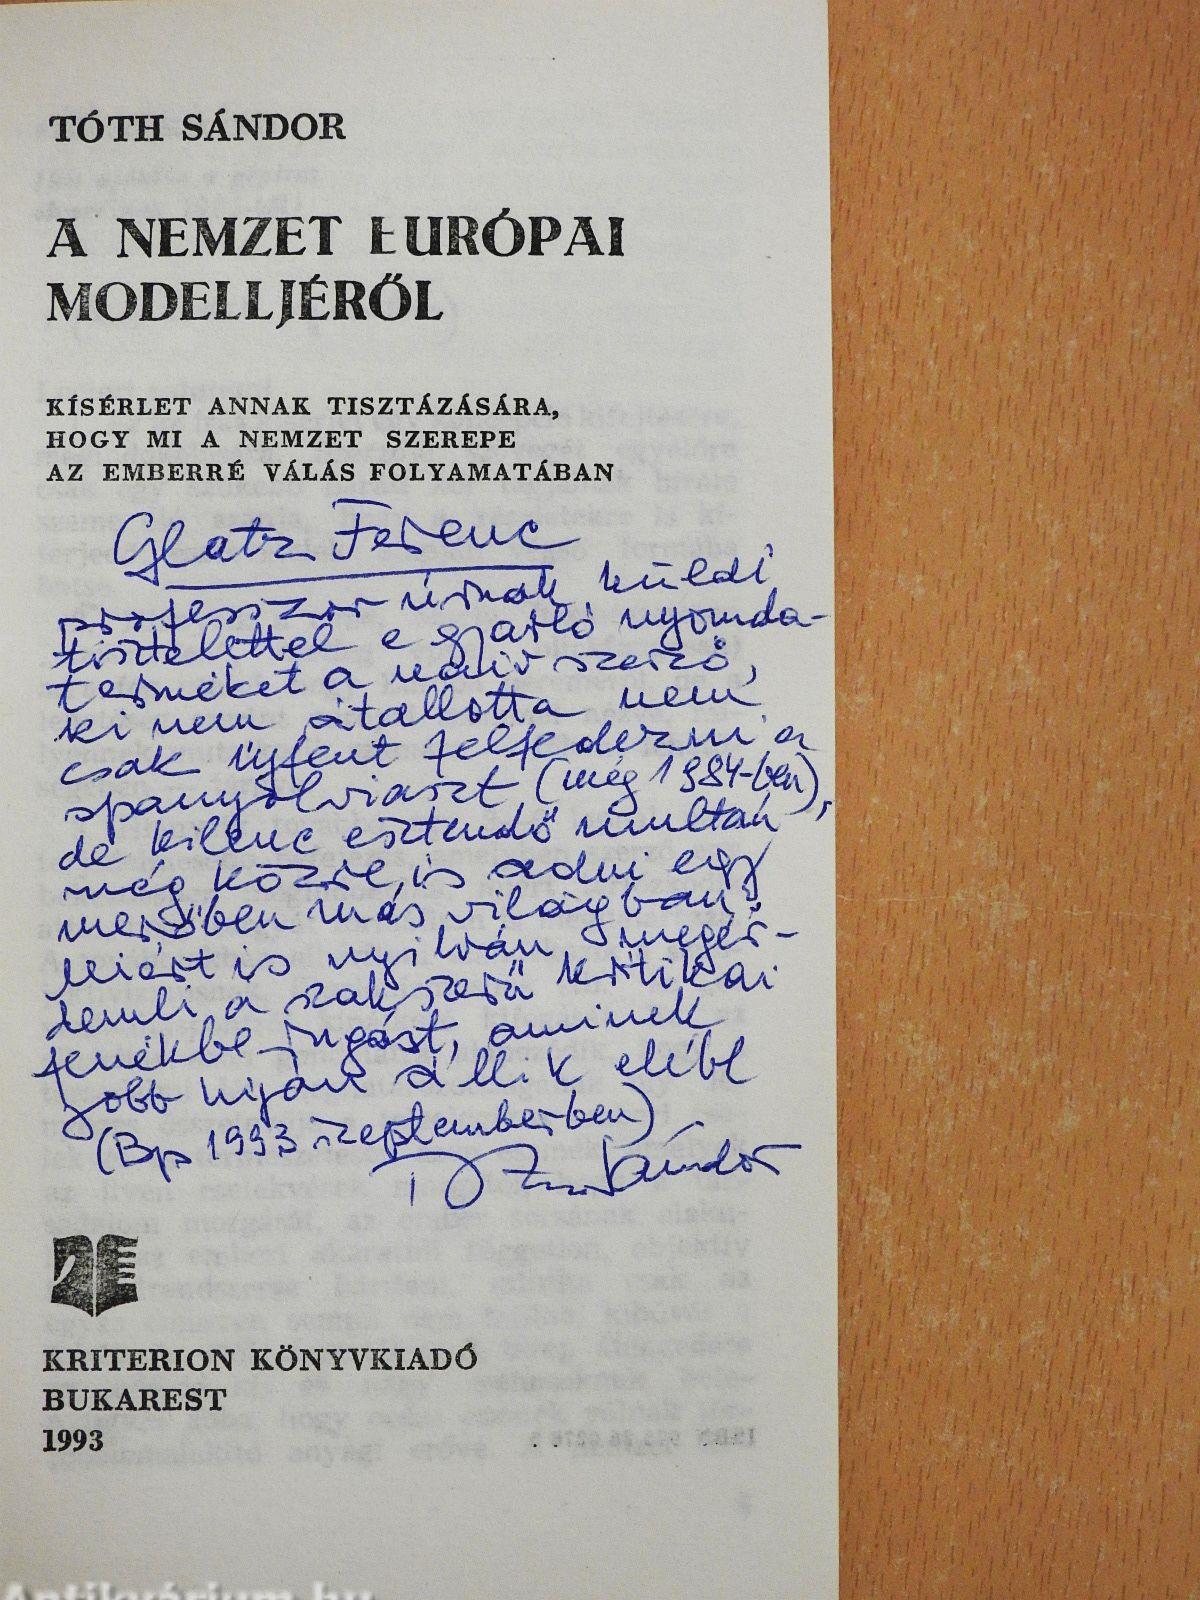 TÓTH SÁNDOR
A NEMZET EURÓPAI
MODELLJÉRŐL
KÍSÉRLET ANNAK TISZTÁZÁSÁRA,
HOGY MI A NEMZET SZEREPE
AZ EMBERRÉ VÁLÁS FOLYAMATÁBAN
Glatz Ferenc
professzor úrnak küldi
tisztelettel e gyarló nyomda-
terméket a naiv szerző,
ki nem átallotta nem
csak újfent felfedezni a
spanyolviaszt (még 1984-ben),
de kilenc esztendő multán
még közre is adni egy
merőben más világban.
Miért is nyilván megér-
demli a szakszerű kritikai
fenékbe rúgást, aminek
jobb híján áll is elébe
(Bp 1993 szeptemberben)
Sándor
KRITERION KÖNYVKIADÓ
BUKAREST
1993
Antikvárium.hu